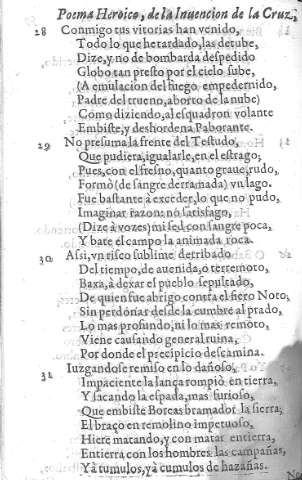 Poema Heroico, de la Inuencion de la Cruz,
28 Conmigo tus vitorias han venido,
Todo lo que he tardado, las detube,
Dize, y no de bombarda despedido
Globo tan presto por el cielo sube,
(A emulacion del fuego empedernido,
Padre del trueno, aborto de la nube)
Como diziendo, al esquadron volante
Embiste, y deshordena Paborante.
29 No presuma la frente del Testudo,
Que pudiera, igualarle, en el estrago;
Pues, con el fresno, quanto graue, rudo,
Formò (de sangre derramada) vn lago.
Fue bastante à exceder, lo que no pudo,
Imaginar razon: no satisfago,
(Dize à vozes) mi sed con sangre poca,
Y bate el campo la animada roca.
30 Assi, vn risco sublime derribado
Del tiempo, de auenida, o terremoto,
Baxa, à dexar el pueblo sepultado,
De quien fue abrigo contra el fiero Noto;
Sin perdonar desde la cumbre al prado,
Lo mas profundo, ni lo mas remoto,
Viene causando general ruina,
Por donde el precipicio descamina.
31 Iuzgandose remiso en lo dañoso,
Impaciente la lança rompiò en tierra,
Y sacando la espada, mas furioso,
Que embiste Boreas bramador la sierra;
El braço en remolino impetuoso,
Hiere matando, y con matar entierra,
Entierra con los hombres las campañas,
Yà tumulos, yà cumulos de hazañas.